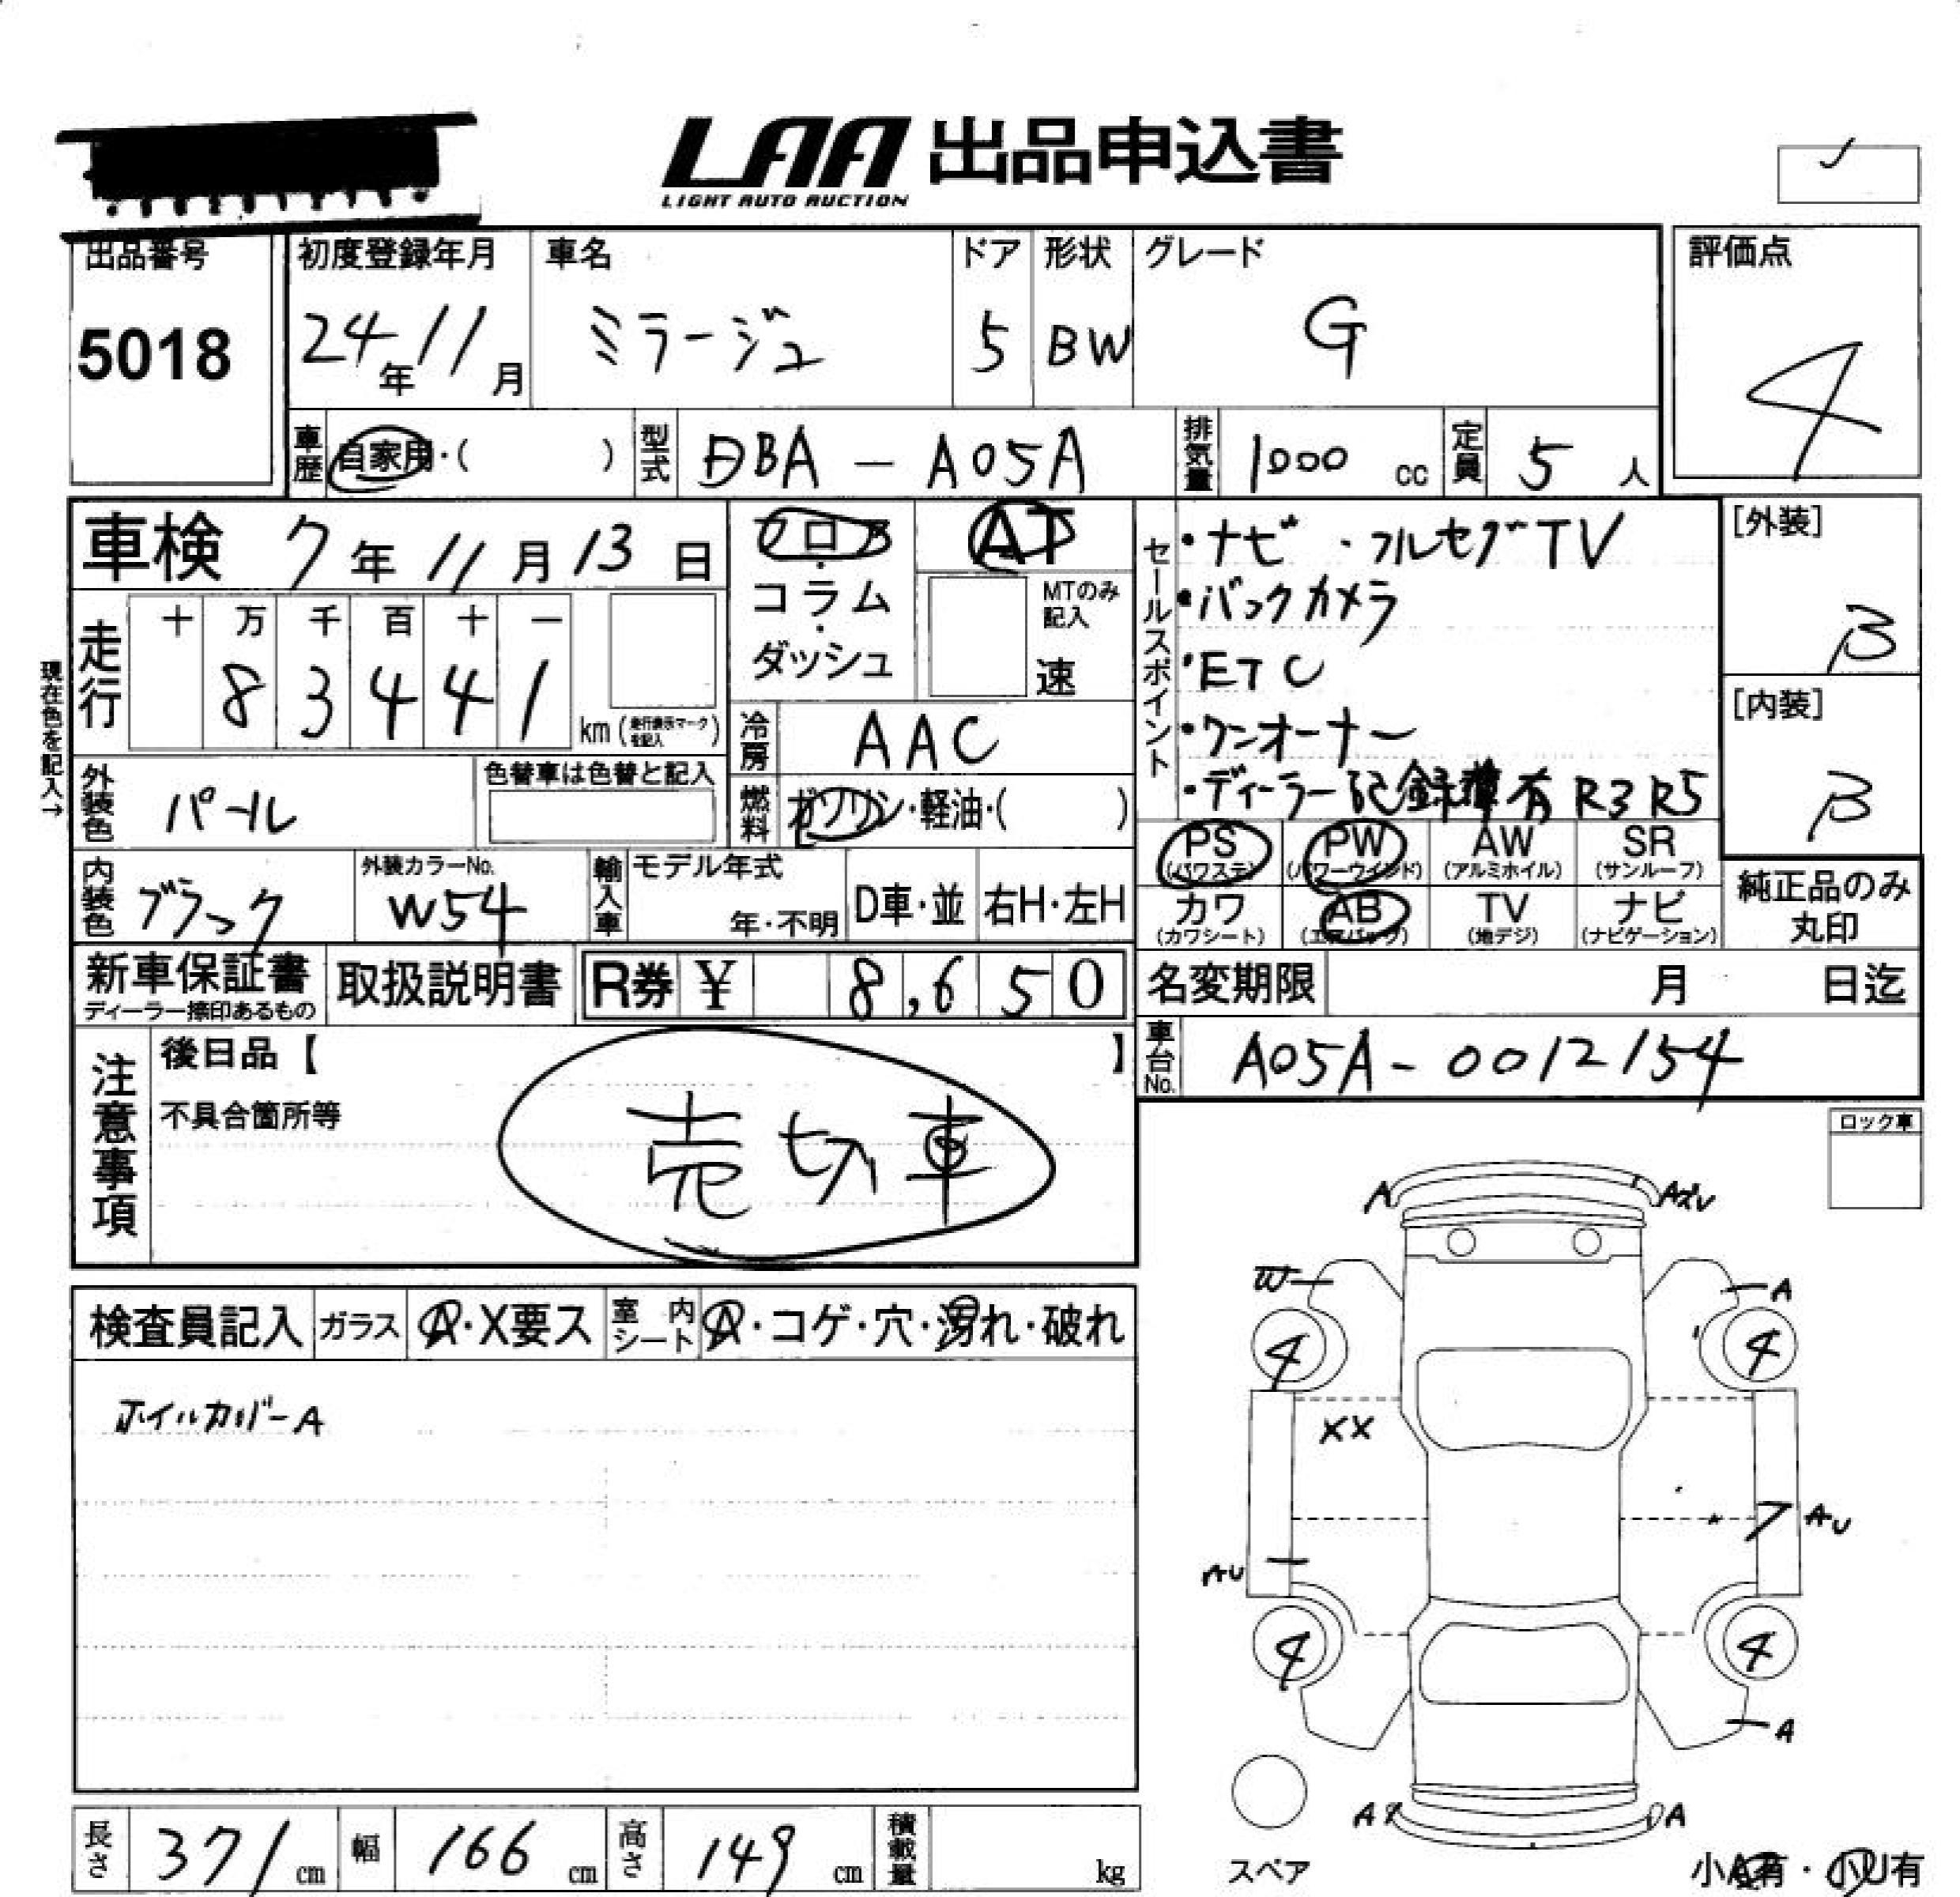 LAA 出品申込書
LIGHT AUTO AUCTION
出品番号 初度登録年月 車名 ドア 形状 グレード 評価点
5018 24年11月 ミラージュ 5 BW G 4
車歴 自家用・( ) 型式 DBA-A05A 排気量 1000 cc 定員 5 人
車検 7年11月13日 フロア・コラム・ダッシュ AT
MTのみ記入 速
セールスポイント
・ナビ ・フルセグTV
・バックカメラ
・ETC
・ワンオーナー
・ディーラー記録簿有 R3 R5
[外装] B
[内装] B
現在色を記入→
走行 十 万 千 百 十 一
8 3 4 4 1 km (走行表示マークを記入)
冷房 AAC
外装色 パール 色替車は色替と記入
燃料 ガソリン・軽油・( )
PS (パワステ) PW (パワーウインド) AW (アルミホイル) SR (サンルーフ)
カワ (カワシート) AB (エアバッグ) TV (地デジ) ナビ (ナビゲーション)
純正品のみ丸印
内装色 ブラック 外装カラーNo. W54 輸入車 モデル年式 年・不明 D車・並 右H・左H
新車保証書 ディーラー捺印あるもの 取扱説明書 R券 ¥ 8,650
名変期限 月 日迄
車台No. A05A-0012154
注意事項 後日品【 】
不具合箇所等
売切車
ロック車
検査員記入 ガラス A・X要ス 室内シート A・コゲ・穴・汚れ・破れ
ホイルカバーA
A
W A
4 4
XX
AU
AU
4 4
A
A A
スペア
小A有・小U有
長さ 371 cm 幅 166 cm 高さ 149 cm 積載量 kg